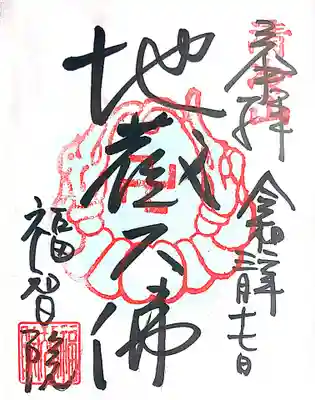 奉拝
令和二年
三月十七日
地蔵大佛
福智院